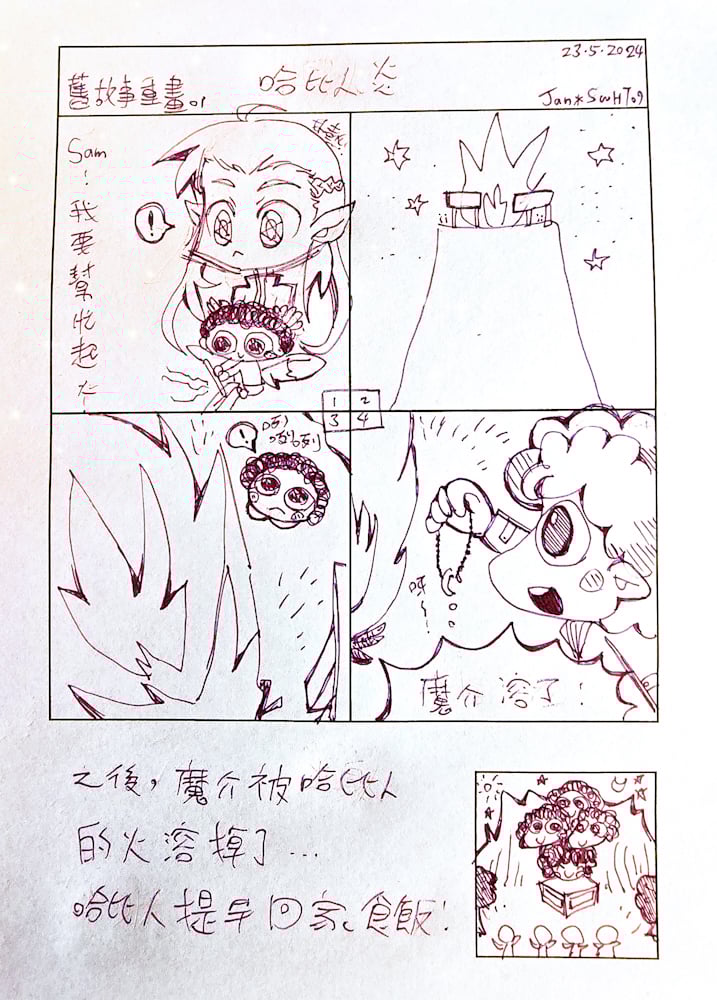 23.5.2024
哈比人炎
舊故事重畫01
Sam!我要幫忙起火!
!
1 2
3 4
!
咧
咧咧
呀~~!
魔介溶了!
之後,魔介被哈比人
的火溶掉了...
哈比人提早回家食飯!